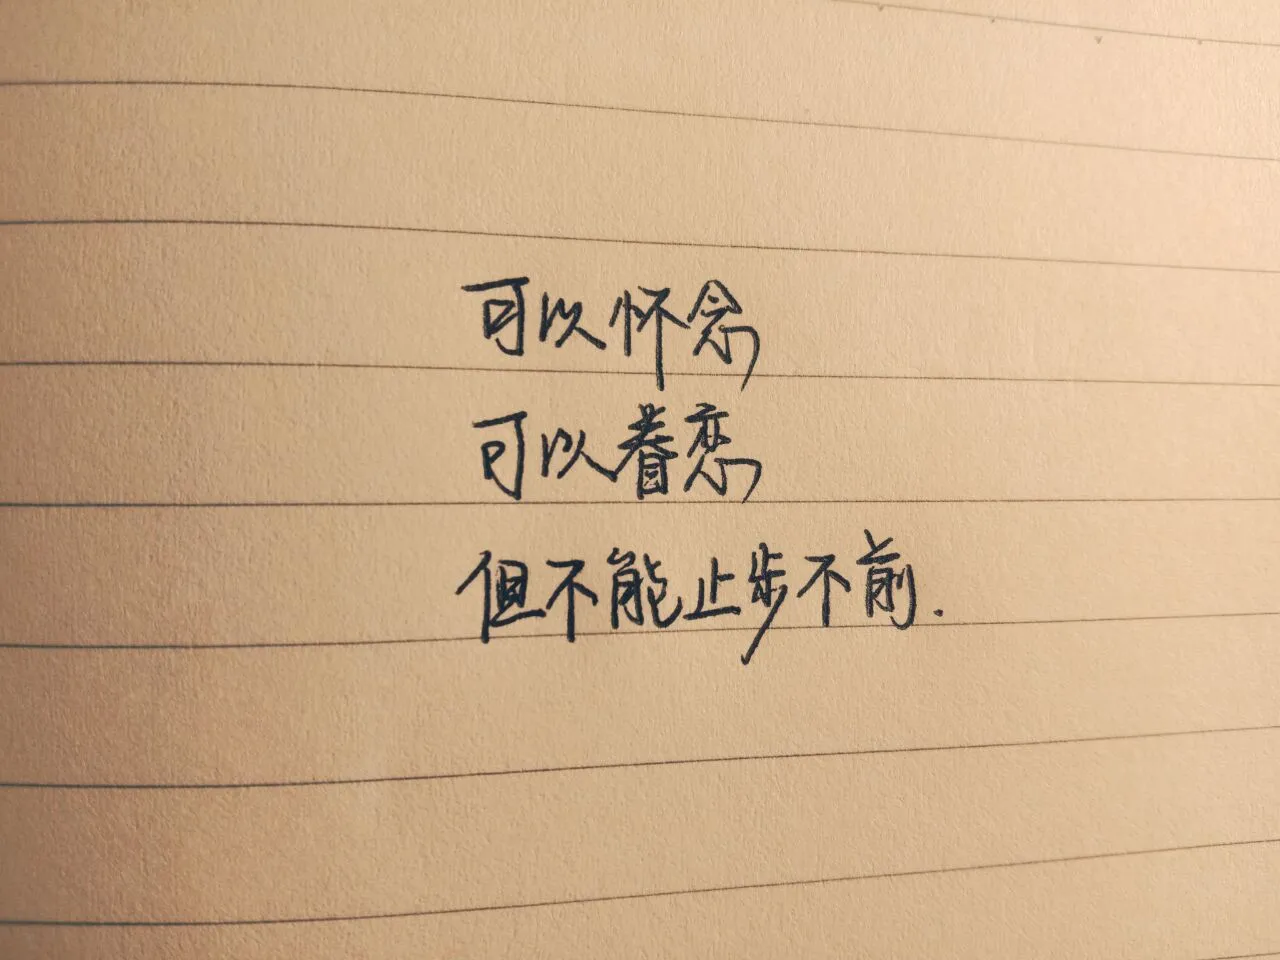 可以怀念
可以眷恋
但不能止步不前.